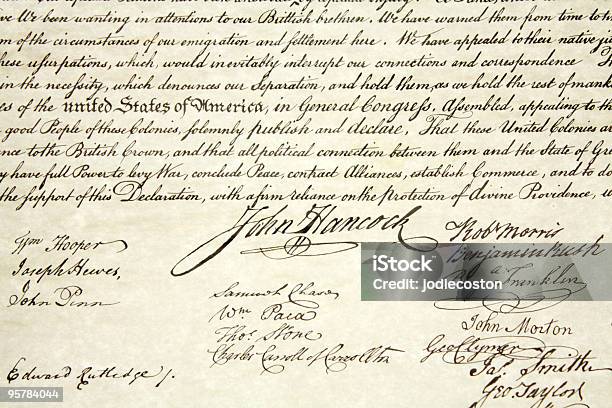 have We been wanting in attentions to our Brittish brethren. We have warned them from time to
of the circumstances of our emigration and settlement here. We have appealed to their native
these usurpations, which, would inevitably interrupt our connections and correspondence
in the necessity, which denounces our Separation, and hold them, as we hold the rest of
of the united States of America, in General Congress, Assembled, appealing to the
good People of these Colonies, solemnly publish and declare, That these United Colonies
to the British Crown, and that all political connection between them and the State of
have full Power to levy War, conclude Peace, contract Alliances, establish Commerce, and to do
the support of this Declaration, with a firm reliance on the Protection of divine Providence,
John Hancock
Robt Morris
Wm Hooper
Benjamin Rush
Joseph Hewes,
John Penn
iStock
Credit: jodiecoston
Samuel Chase
Wm Paca
Thos Stone
Charles Carroll of Carrollton
John Morton
Geo Clymer
Jas. Smith
Geo. Taylor
Edward Rutledge /.
95784044